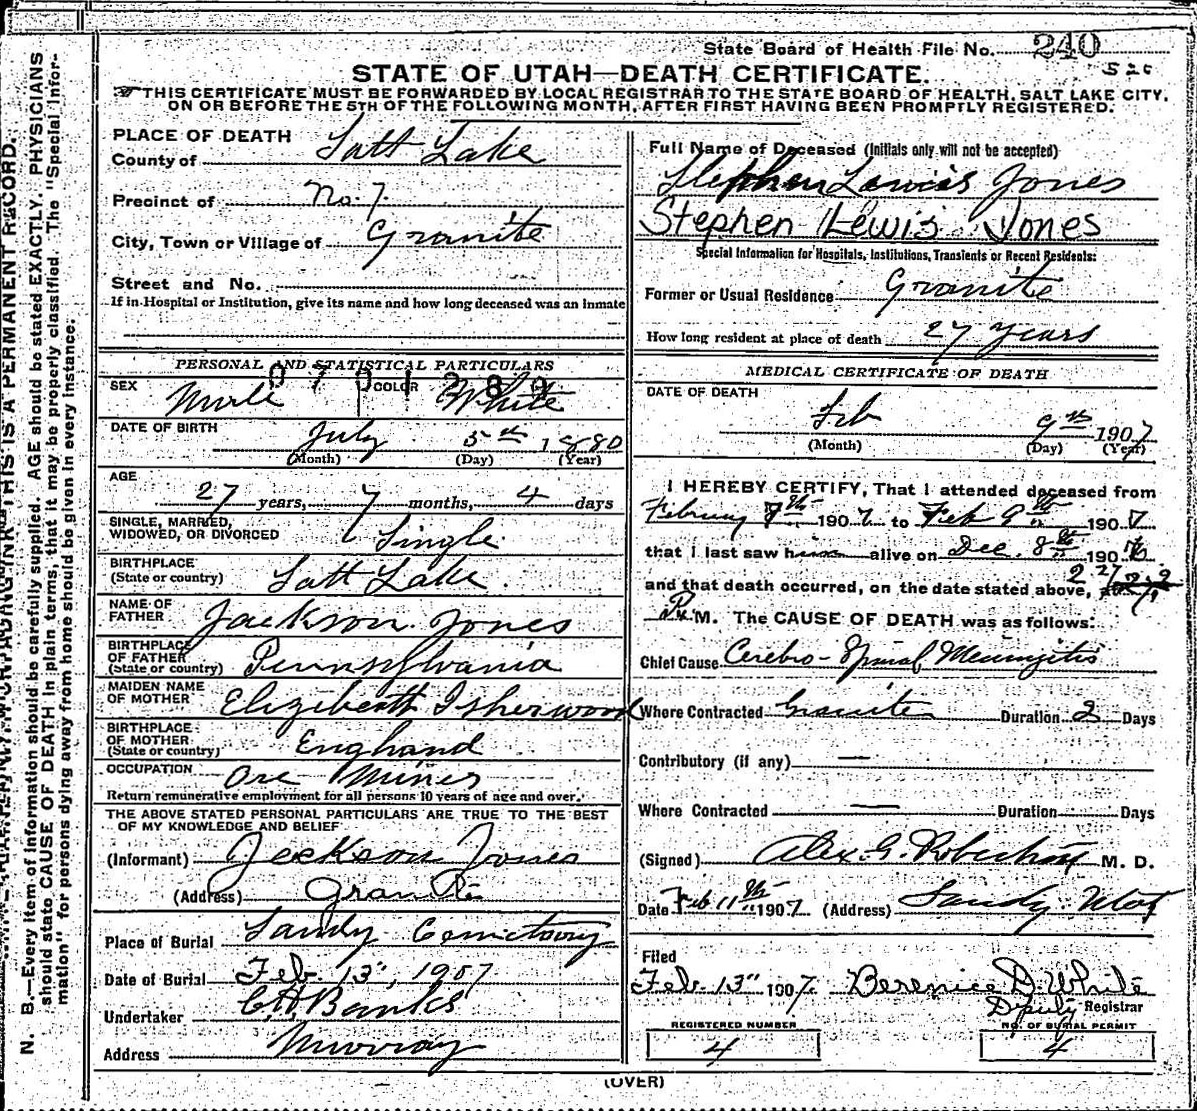 State Board of Health File No. 240
STATE OF UTAH—DEATH CERTIFICATE.
THIS CERTIFICATE MUST BE FORWARDED BY LOCAL REGISTRAR TO THE STATE BOARD OF HEALTH, SALT LAKE CITY,
ON OR BEFORE THE 5TH OF THE FOLLOWING MONTH, AFTER FIRST HAVING BEEN PROMPTLY REGISTERED.
PLACE OF DEATH
County of Salt Lake
Precinct of No. 7.
City, Town or Village of Granite
Street and No.
If in Hospital or Institution, give its name and how long deceased was an inmate
PERSONAL AND STATISTICAL PARTICULARS
0701289
SEX Male COLOR White
DATE OF BIRTH July 5th 1880
(Month) (Day) (Year)
AGE
27 years, 7 months, 4 days
SINGLE, MARRIED,
WIDOWED, OR DIVORCED Single
BIRTHPLACE
(State or country) Salt Lake.
NAME OF
FATHER Jackson Jones
BIRTHPLACE
OF FATHER
(State or country) Pennsylvania
MAIDEN NAME
OF MOTHER Elizibeath Isherwood
BIRTHPLACE
OF MOTHER
(State or country) England
OCCUPATION Ore Miner
Return remunerative employment for all persons 10 years of age and over.
THE ABOVE STATED PERSONAL PARTICULARS ARE TRUE TO THE BEST
OF MY KNOWLEDGE AND BELIEF
(Informant) Jackson Jones
(Address) Granite
Place of Burial Sandy Cemetary
Date of Burial Feb 13", 1907
Undertaker C.H. Banks
Address Murray
Full Name of Deceased (Initials only will not be accepted)
Stephen Lewis Jones
Stephen Lewis Jones
Special Information for Hospitals, Institutions, Transients or Recent Residents:
Former or Usual Residence Granite
How long resident at place of death 27 Years
MEDICAL CERTIFICATE OF DEATH
DATE OF DEATH
Feb 9th 1907
(Month) (Day) (Year)
I HEREBY CERTIFY, That I attended deceased from
February 7th 1907 to Feb 9th 1907
that I last saw him alive on Dec. 8th 190
and that death occurred, on the date stated above,
P. M. The CAUSE OF DEATH was as follows:
Chief Cause Cerebro-Spinal Meningitis
Where Contracted Granite Duration 2 Days
Contributory (if any) —
Where Contracted — Duration Days
(Signed) Alex. G. Robertson M. D.
Date Feb 11th 1907 (Address) Sandy. Utah
Filed
Feb. 13" 1907. Berenice D. White
Deputy Registrar
REGISTERED NUMBER
4
NO. OF BURIAL PERMIT
4
(OVER)
N. B.—Every item of information should be carefully supplied. AGE should be stated EXACTLY. PHYSICIANS
should state CAUSE OF DEATH in plain terms, that it may be properly classified. The "Special Infor-
mation" for persons dying away from home should be given in every instance.
THIS IS A PERMANENT RECORD.